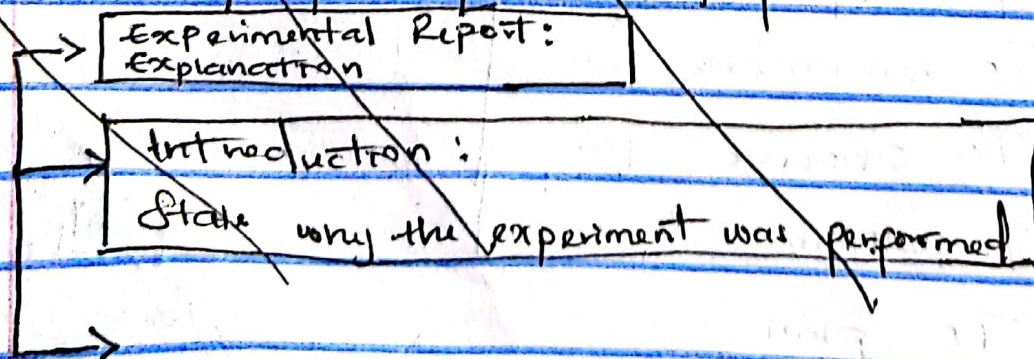 Experimental Report:
Explanation
Introduction:
State why the experiment was performed